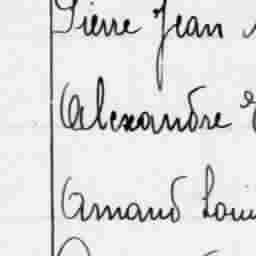 Pierre Jean
Alexandre
Amand Loui